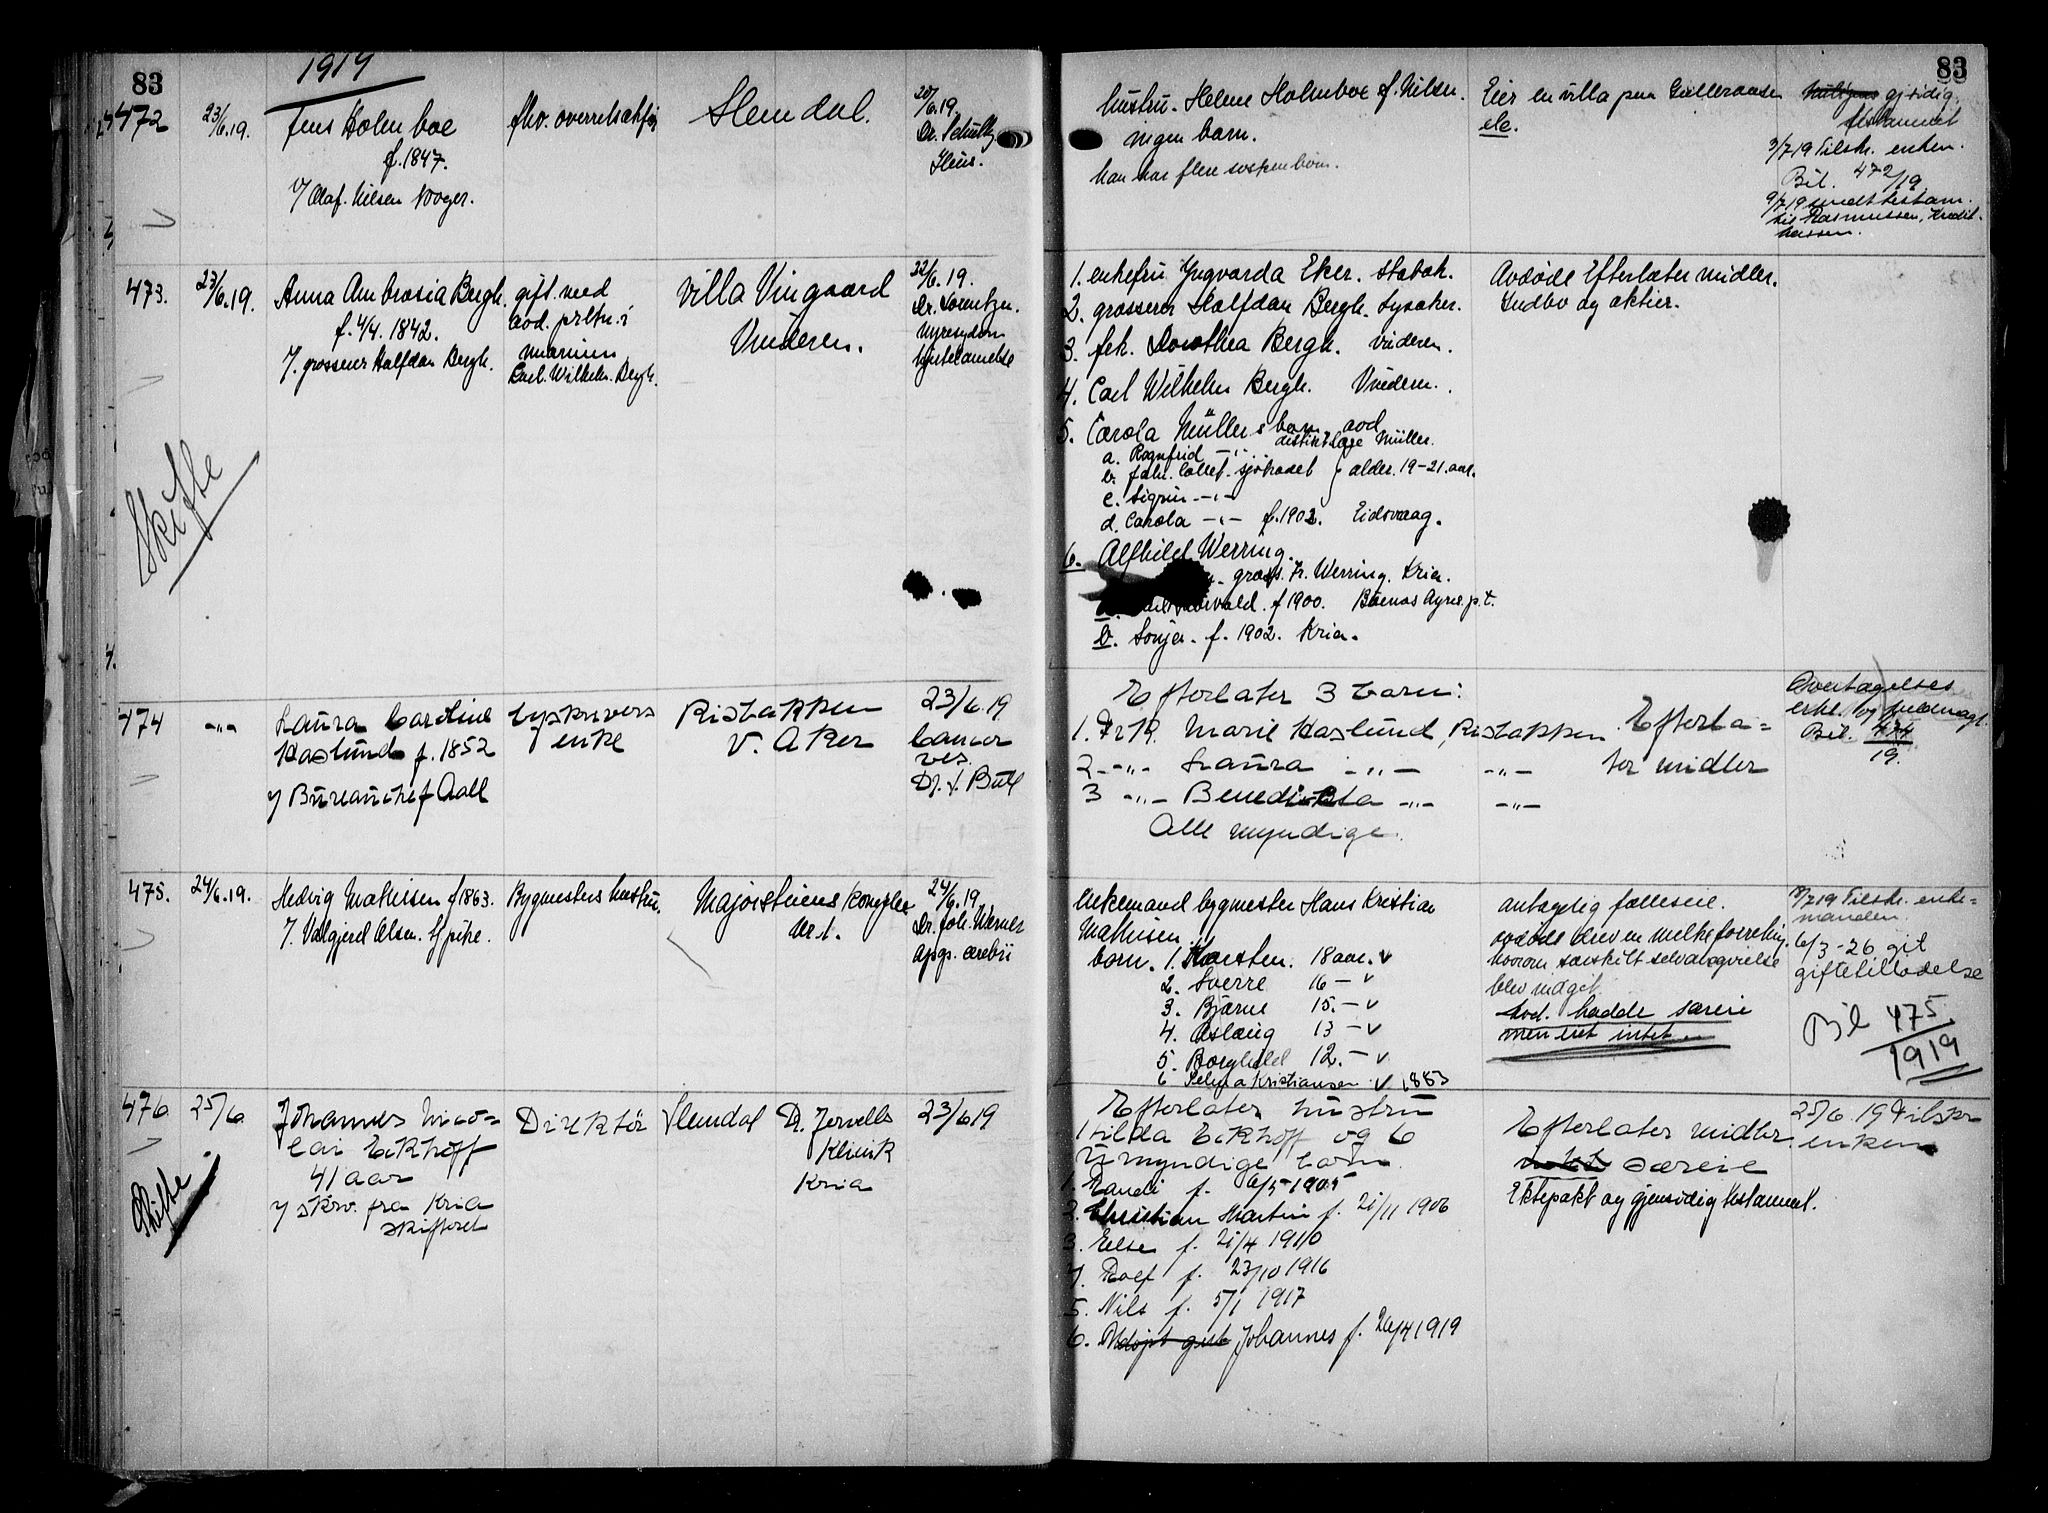 83
1919
83
472
23/6.19.
Jens Holmboe
f. 1847.
7/ Olaf Nilsen
fhv. overretssakfør
Slemdal.
20/6.19.
Dr. Schultz
Ileus.
hustru. Helene Holmboe f. Nilsen.
ingen barn.
han har flere søskenbørn.
Eier en villa paa Gulleraasen
etc.
gjsidig
testament
3/7 19 Tilskr. enken.
Bil. 472/19
9/7 19 sendt testam.
til Rasmussen, Kredit-
kassen.
473.
23/6.19.
Anna Ambrosia Bergh.
f. 4/4. 1842.
7. grosserer Halfdan Bergh.
gift med
avd. prltn. i
marinen
Carl Wilhelm Bergh.
Villa Vingaard
Vinderen.
22/6.19.
Dr. Lorentzen.
nyresygdom
hjertelamelse
1. enkefru Yngvarda Eker. Stabæk.
2. grosserer Halfdan Bergh. Lysaker.
3. frk. Dorothea Bergh. Vinderen.
4. Carl Wilhelm Bergh. Vinderen.
5. Carola Müllers barn avd
distriktslæge Müller.
a. Ragnfrid -"-
b. Jakr. Collet. sjøkadet } alder. 19-21. aar.
c. Sigrun -"-
d. Carola -"- f. 1902. Eidsvaag.
6. Alfhild Werring.
gross. Fr. Werring. Kria.
f 1900. Buenos Ayres p.t.
b. Sonja. f. 1902. Kria.
Avdøde Efterlater midler.
Indbo og aktier.
Skifte
474
-"-
Laura Caroline
Haslund f. 1852
7/ Bureauchef Aall
byskrivers
enke
Ristakken
V. Aker
23/6.19
Cancer
ves.
Dr. J. Bull
Efterlater 3 barn:
1. Frk. Marie Haslund, Ristakken
2 -"- Laura -"- -"-
3 -"- Benedikta -"- -"-
Alle myndige.
Efterla=
ter midler
Overtagelses
erkl. og fuldmagt.
Bil. 474
19.
475.
24/6.19.
Hedvig Mathisen f 1863.
7. Valgjerd Olsen. Tjpike.
Bygmesters hustru.
Majorstuens kompleks
Nr. 1.
24/6.19
Dr. Joh. Werner
apopl. cerebri
Enkemand bygmester Hans Kristian
Mathisen.
barn. 1. Karsten. 18 aar. v
2. Sverre 16 - v
3. Bjarne 15. - v
4. Aslaug 13 - v
5. Borghild 12. - v
6 Selma Kristiansen v 1883
antagelig fælleseie.
avdøde drev en melkeforretning.
hvorom særskilt selvangivelse
blev indgit.
Avd. hadde særeie
men eiet intet.
18/7 19 Tilskr. enke=
manden.
6/3-26 git
giftetilladelse
Bil 475.
1919
476
25/6.
Johannes Nico=
lai Eckhoff
41 aar
7/ skrv. fra Kria
skifteret
Direktør
Slemdal
Dr. Jervells
Klinik
Kria
23/6 19
Efterlater hustru
Hilda Eckhoff og 6
umyndige barn.
1. Randi f. 6/5 1905
2. Christian Martin f. 21/11 1906
3. Else f. 21/4 1910
4. Rolf f. 23/10 1916
5. Nils f. 5/1 1917
6. Udøpt gut Johannes f. 26/4 1919
Efterlater midler
særeie
Ektepakt og gjensidig testament.
25/6 19 Tilskr
enken
Skifte.